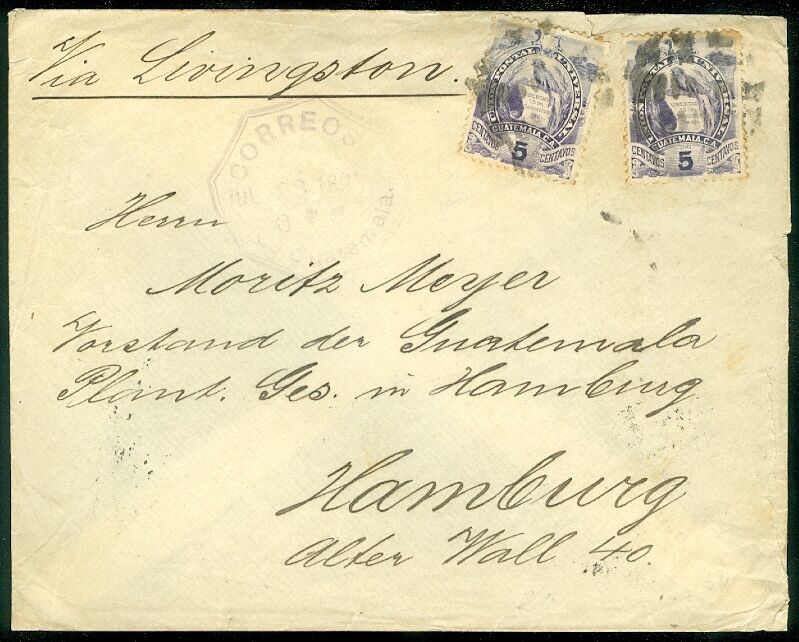 Via Livingston.
UNION POSTAL UNIVERSAL
GUATEMALA C.A.
CENTAVOS 5 CENTAVOS
UNION POSTAL UNIVERSAL
GUATEMALA C.A.
CENTAVOS 5 CENTAVOS
CORREOS
JUL 23
Guatemala.
Herrn
Moritz Meyer
Vorstand der Guatemala
Plant. Ges. in Hamburg
Hamburg
Alter Wall 40.